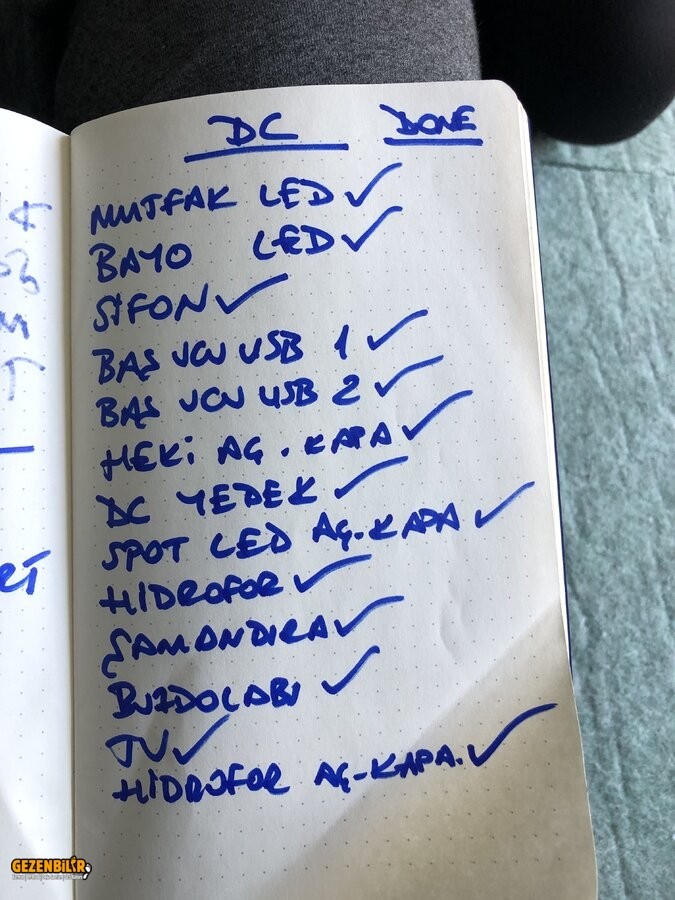 DC DONE
MUTFAK LED ✓
BAYO LED ✓
SİFON ✓
BAŞ UCU USB 1 ✓
BAŞ UCU USB 2 ✓
HEKİ AÇ.KAPA ✓
DC YEDEK ✓
SPOT LED AÇ.KAPA ✓
HİDROFOR ✓
ŞAMANDIRA ✓
BUZDOLABI ✓
TV ✓
HİDROFOR AÇ-KAPA. ✓
RT
GEZENBİLİR